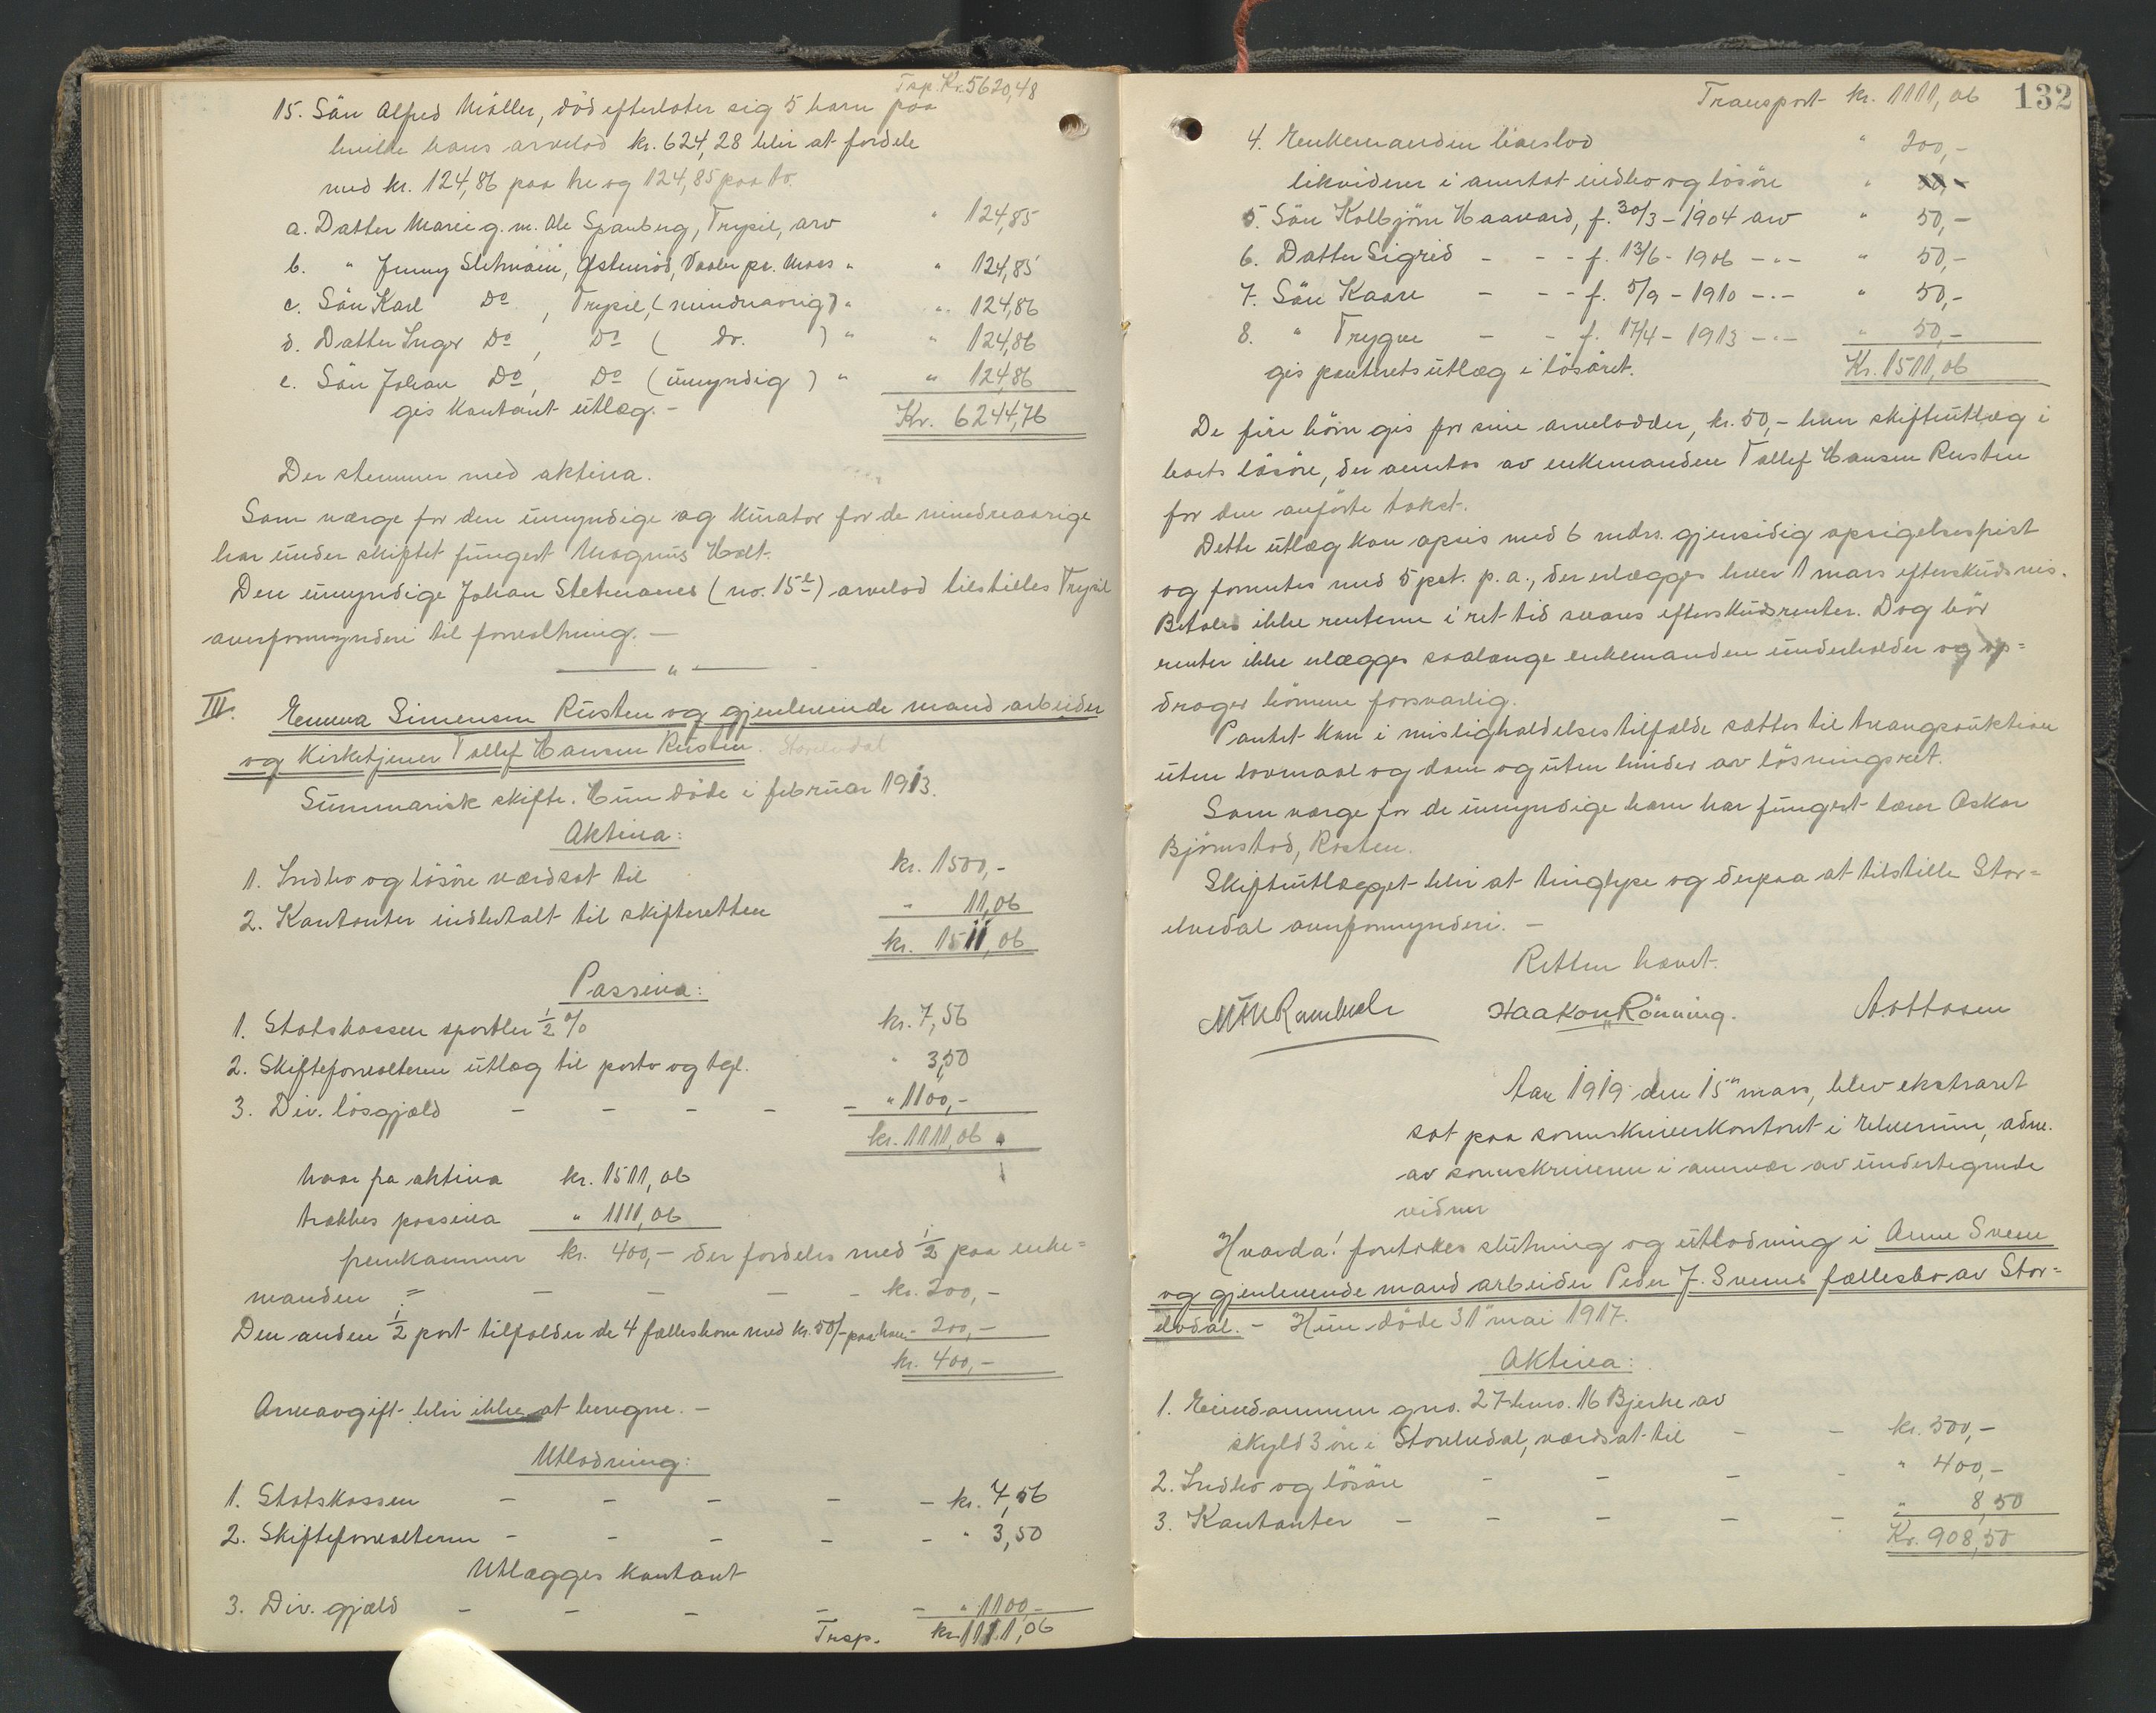 Tsp. Kr. 5620,48
15. Sön Alfred Möller, död efterlater sig 5 barn paa
hvilke hans arvelod kr. 624,28 blir at fordele
med kr. 124,86 paa tre og 124,85 paa to.
a. Datter Marie g. m. Ole Spanberg, Trysil, arv " 124,85
b. " Jenny Sletmoen, Østenrød, Vaaler pr. Moss " " 124,85
c. Sön Karl Do, Trysil, (mindreaarig) " " 124,86
d. Datter Inger Do, Do ( do. ) " " 124,86
e. Sön Johan Do, Do (umyndig) " " 124,86
gis kontant utlæg. - Kr. 6244,76
Der stemmer med aktiva.
Som værge for den umyndige og kurator for de mindreaarige
har under skiftet fungert Magnus Holt.
Den umyndige Johan Sletmoens (no. 15 e) arvelod tilstilles Trysil
overformynderi til forvaltning. -
III. Emma Simensen Rusten og gjenlevende mand arbeider
og kirketjener Tollef Hansen Rusten. Storelvdal
Summarisk skifte. Hun döde i februar 1913.
Aktiva:
1. Indbo og lösöre værdsat til kr. 1500,-
2. Kontanter indbetalt til skifteretten " 11,06
kr. 1511,06
Passiva:
1. Statskassen sportler 1/2 % kr. 7,56
2. Skifteforvalteren utlæg til porto og tgl. " 3,50
3. Div. lösgjæld - - - - - " 1100,-
kr. 1111,06
hvor fra aktiva kr. 1511,06
trækkes passiva " 1111,06
fremkommer kr. 400,- der fordeles med 1/2 paa enke=
manden = - - - - kr. 200,-
Den anden 1/2 part tilfalder de 4 fællesbarn med kr. 50,- paa hver - 200,-
kr. 400,-
Arveavgift blir ikke at beregne. -
Utlodning:
1. Statskassen - - - - - kr. 7,56
2. Skifteforvalteren - - - - - " 3,50
Utlægges kontant
3. Div. gjæld - - - - - " 1100,-
Trsp. kr. 1111,06
Transport kr. 1111,06 132
4. Enkemanden boeslod " 200,-
likvideres i avertat indbo og lösöre "
5. Sön Kolbjörn Haavard, f. 30/3 - 1904 arv " 50,-
6. Datter Sigrid - - - f. 13/6 - 1906 - " - " 50,-
7. Sön Kaare - - - f. 5/9 - 1910 - " - " 50,-
8. " Trygve - - f. 17/4 - 1913 - " - " 50,-
gis panteretsutlæg i lösöret. Kr. 1511,06
De fire börn gis for sine arvelodder, kr. 50,- hver skifteutlæg i
boets lösöre, der avertas av enkemanden Tollef Hansen Rusten
for den anförte takst.
Dette utlæg kan opsis med 6 mdrs. gjensidig opsigelsesfrist
og forrentes med 5 pct. p. a., der erlægges hver 1 mars efterskudsvis.
Betales ikke renterne i ret tid svares efterskudsrenter. Dog bör
renter ikke erlægges saalænge enkemanden underholder og op=
drager börnene forsvarlig.
Pantet kan i misligholdelsestilfælde sættes til tvangsauktion
uten lovmaal og dom og uten hinder av lösningsret.
Som værge for de umyndige barn har fungert lærer Oskar
Björnstad, Rasten.
Skifteutlægget blir at tinglyse og derpaa at tilstille Stor=
elvedal overformynderi. -
Retten hævet.
Haakon Rönning. A. Ottosen
Aar 1919 den 15de mars, blev ekstraret
sat paa sorenskriverkontoret i Elverum, adm.
av sorenskriveren i nærvær av undertegnede
vidner
Hvorda! foretokes slutning og utlodning i Anne Sveen
og gjenlevende mand arbeider Peder J. Sveens fællesbo av Stor=
elvdal. - Hun döde 31te mai 1917.
Aktiva:
1. Eiendommen gno. 27 bno. 16 Bjerke av
skyld 3 öre i Storelvdal, værdsat til - - kr. 500,-
2. Indbo og lösöre - - - - " 400,-
3. Kontanter - - - - - " 8,50
Kr. 908,50